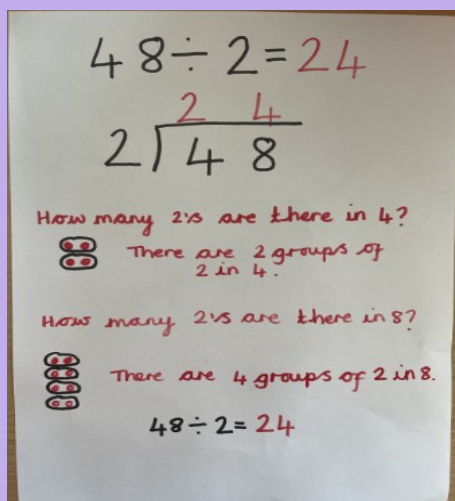 48÷2=24
2 4
2)48
How many 2's are there in 4?
There are 2 groups of
2 in 4.
How many 2's are there in 8?
There are 4 groups of 2 in 8.
48÷2=24